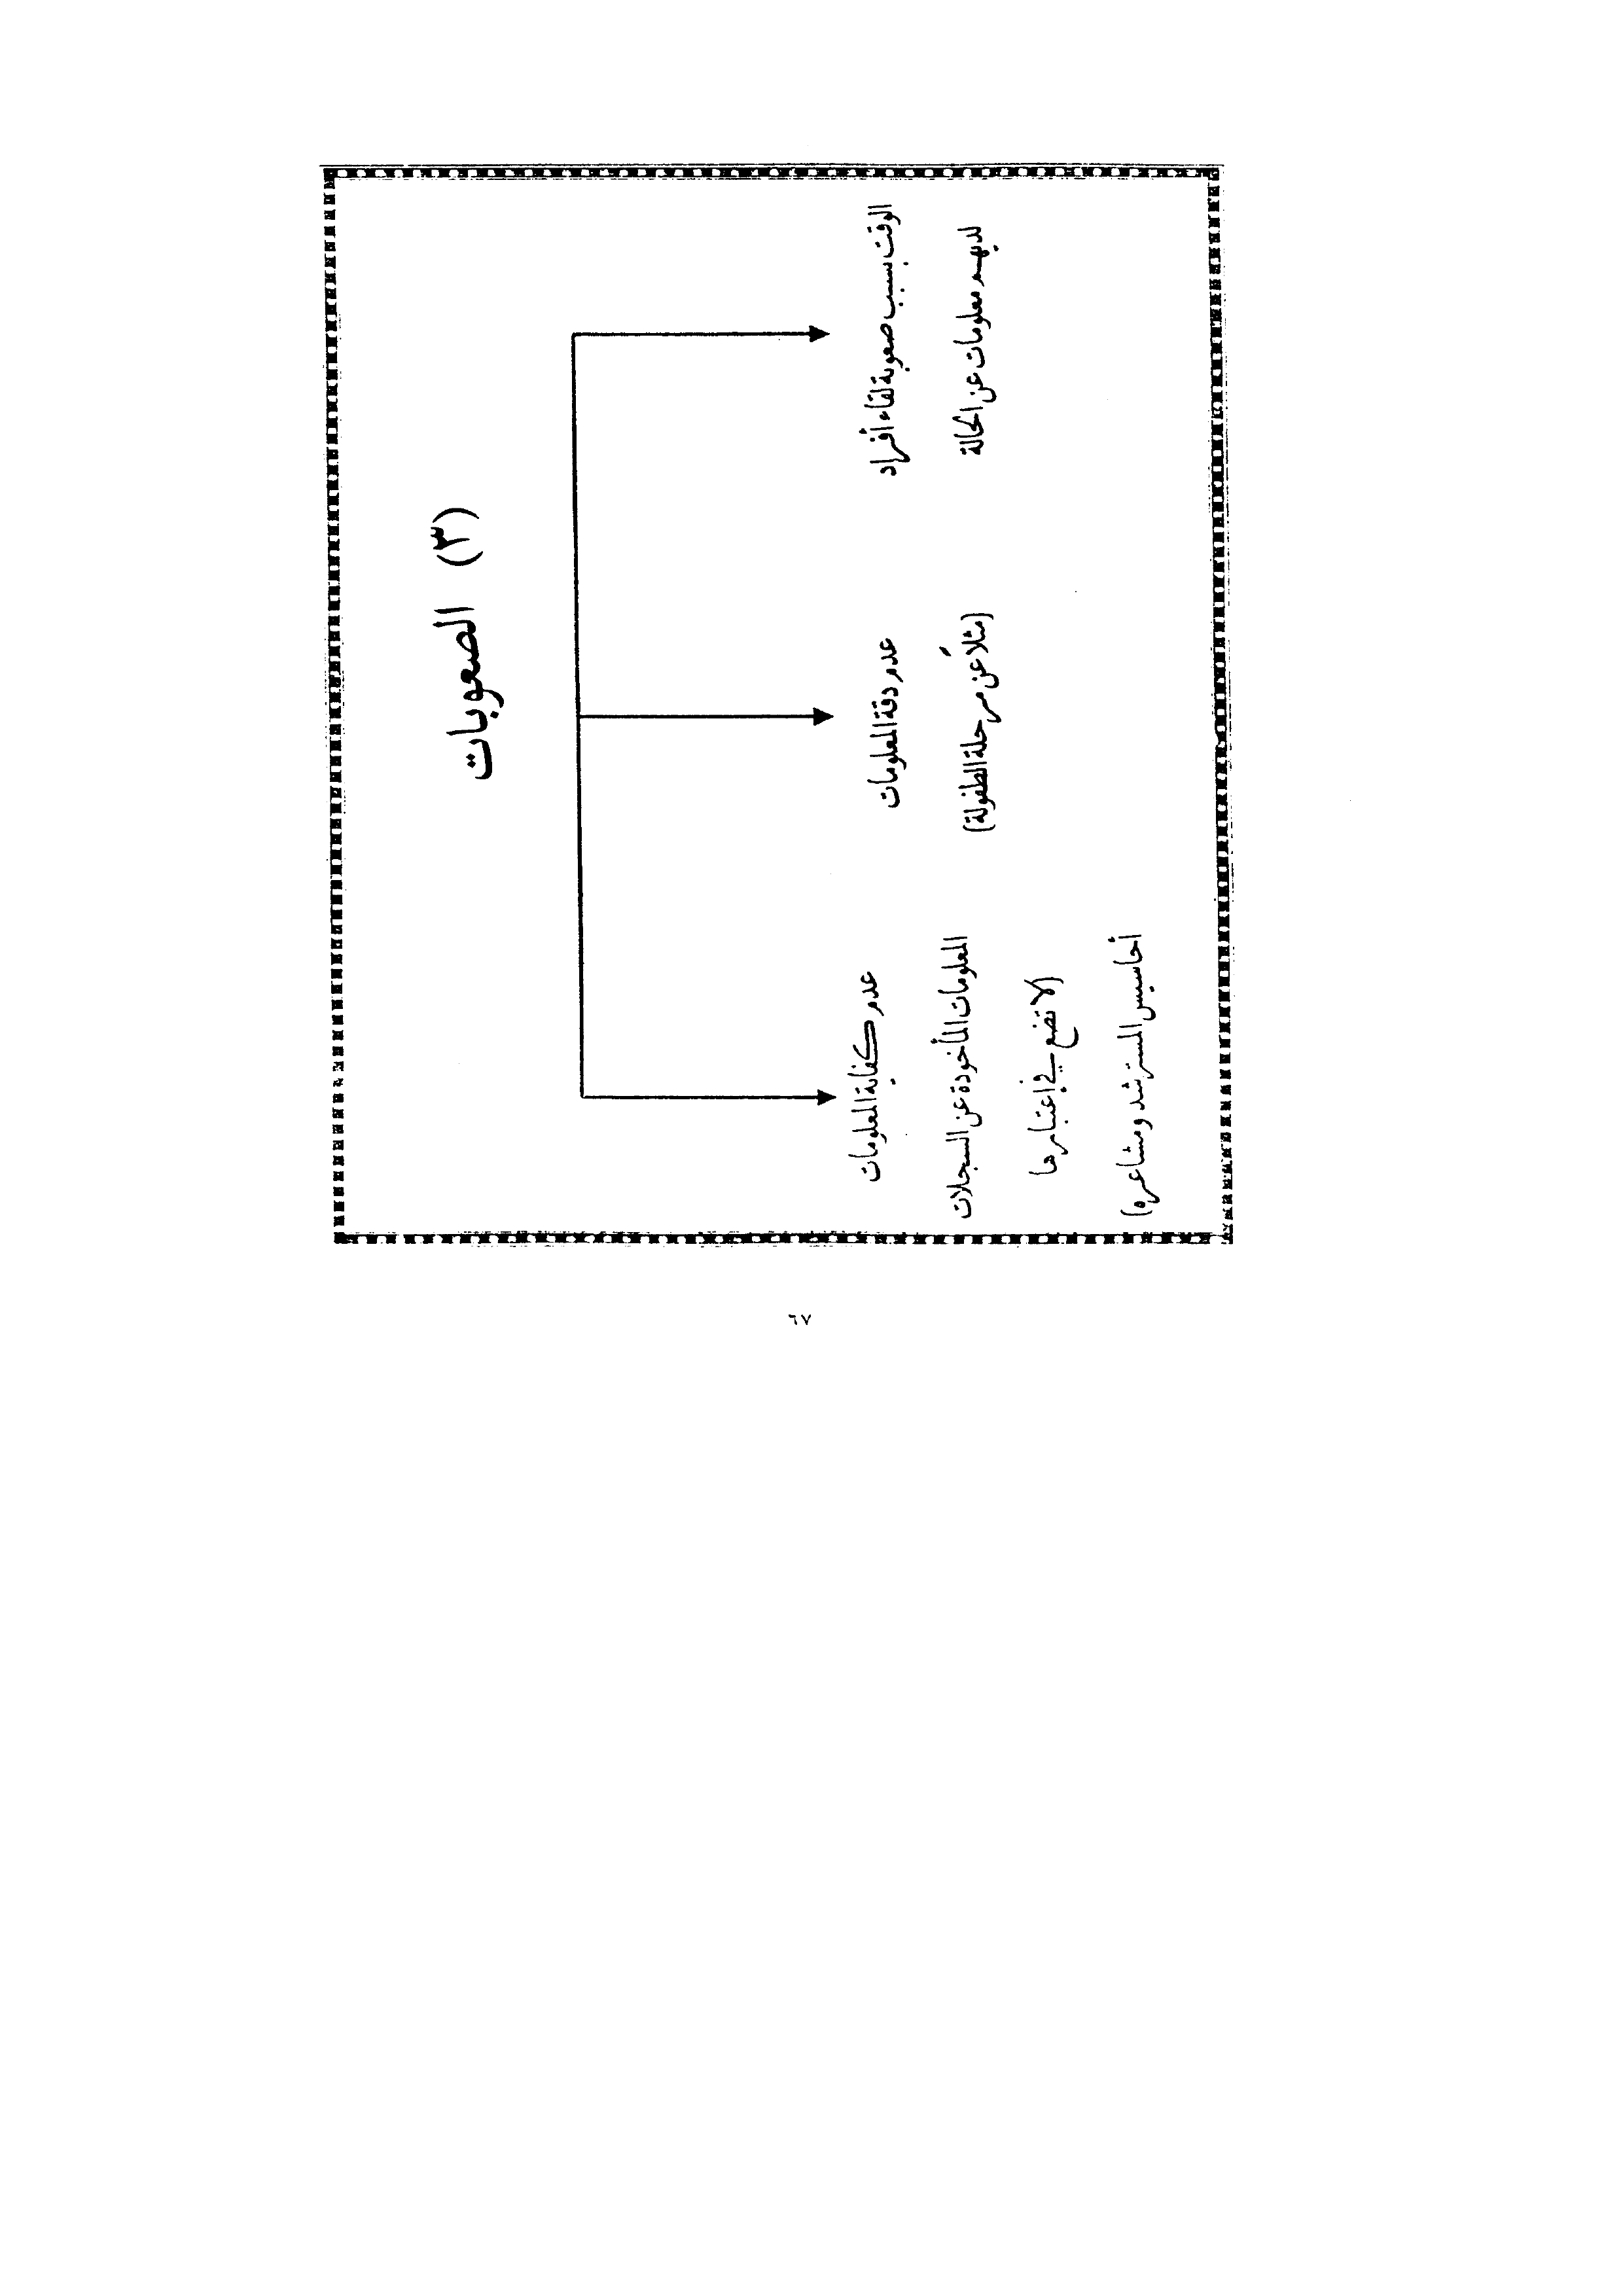 (٣) الصعوبات
الوقت بسبب صعوبة لقاء أفراد
لديهم معلومات عن الحالة
عدم دقة المعلومات
(مثلاً عن مرحلة الطفولة)
عدم كفاية المعلومات
المعلومات المأخوذة عن السجلات
(لا تضع في إعتبارها
أحاسيس المسترشد ومشاعره)
٦٧